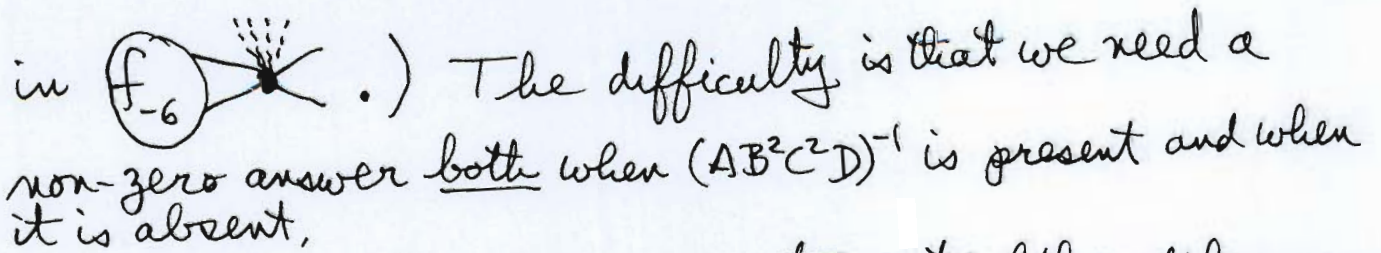 in f₋₆ .) The difficulty is that we need a
non-zero answer both when (AB²C²D)⁻¹ is present and when
it is absent,